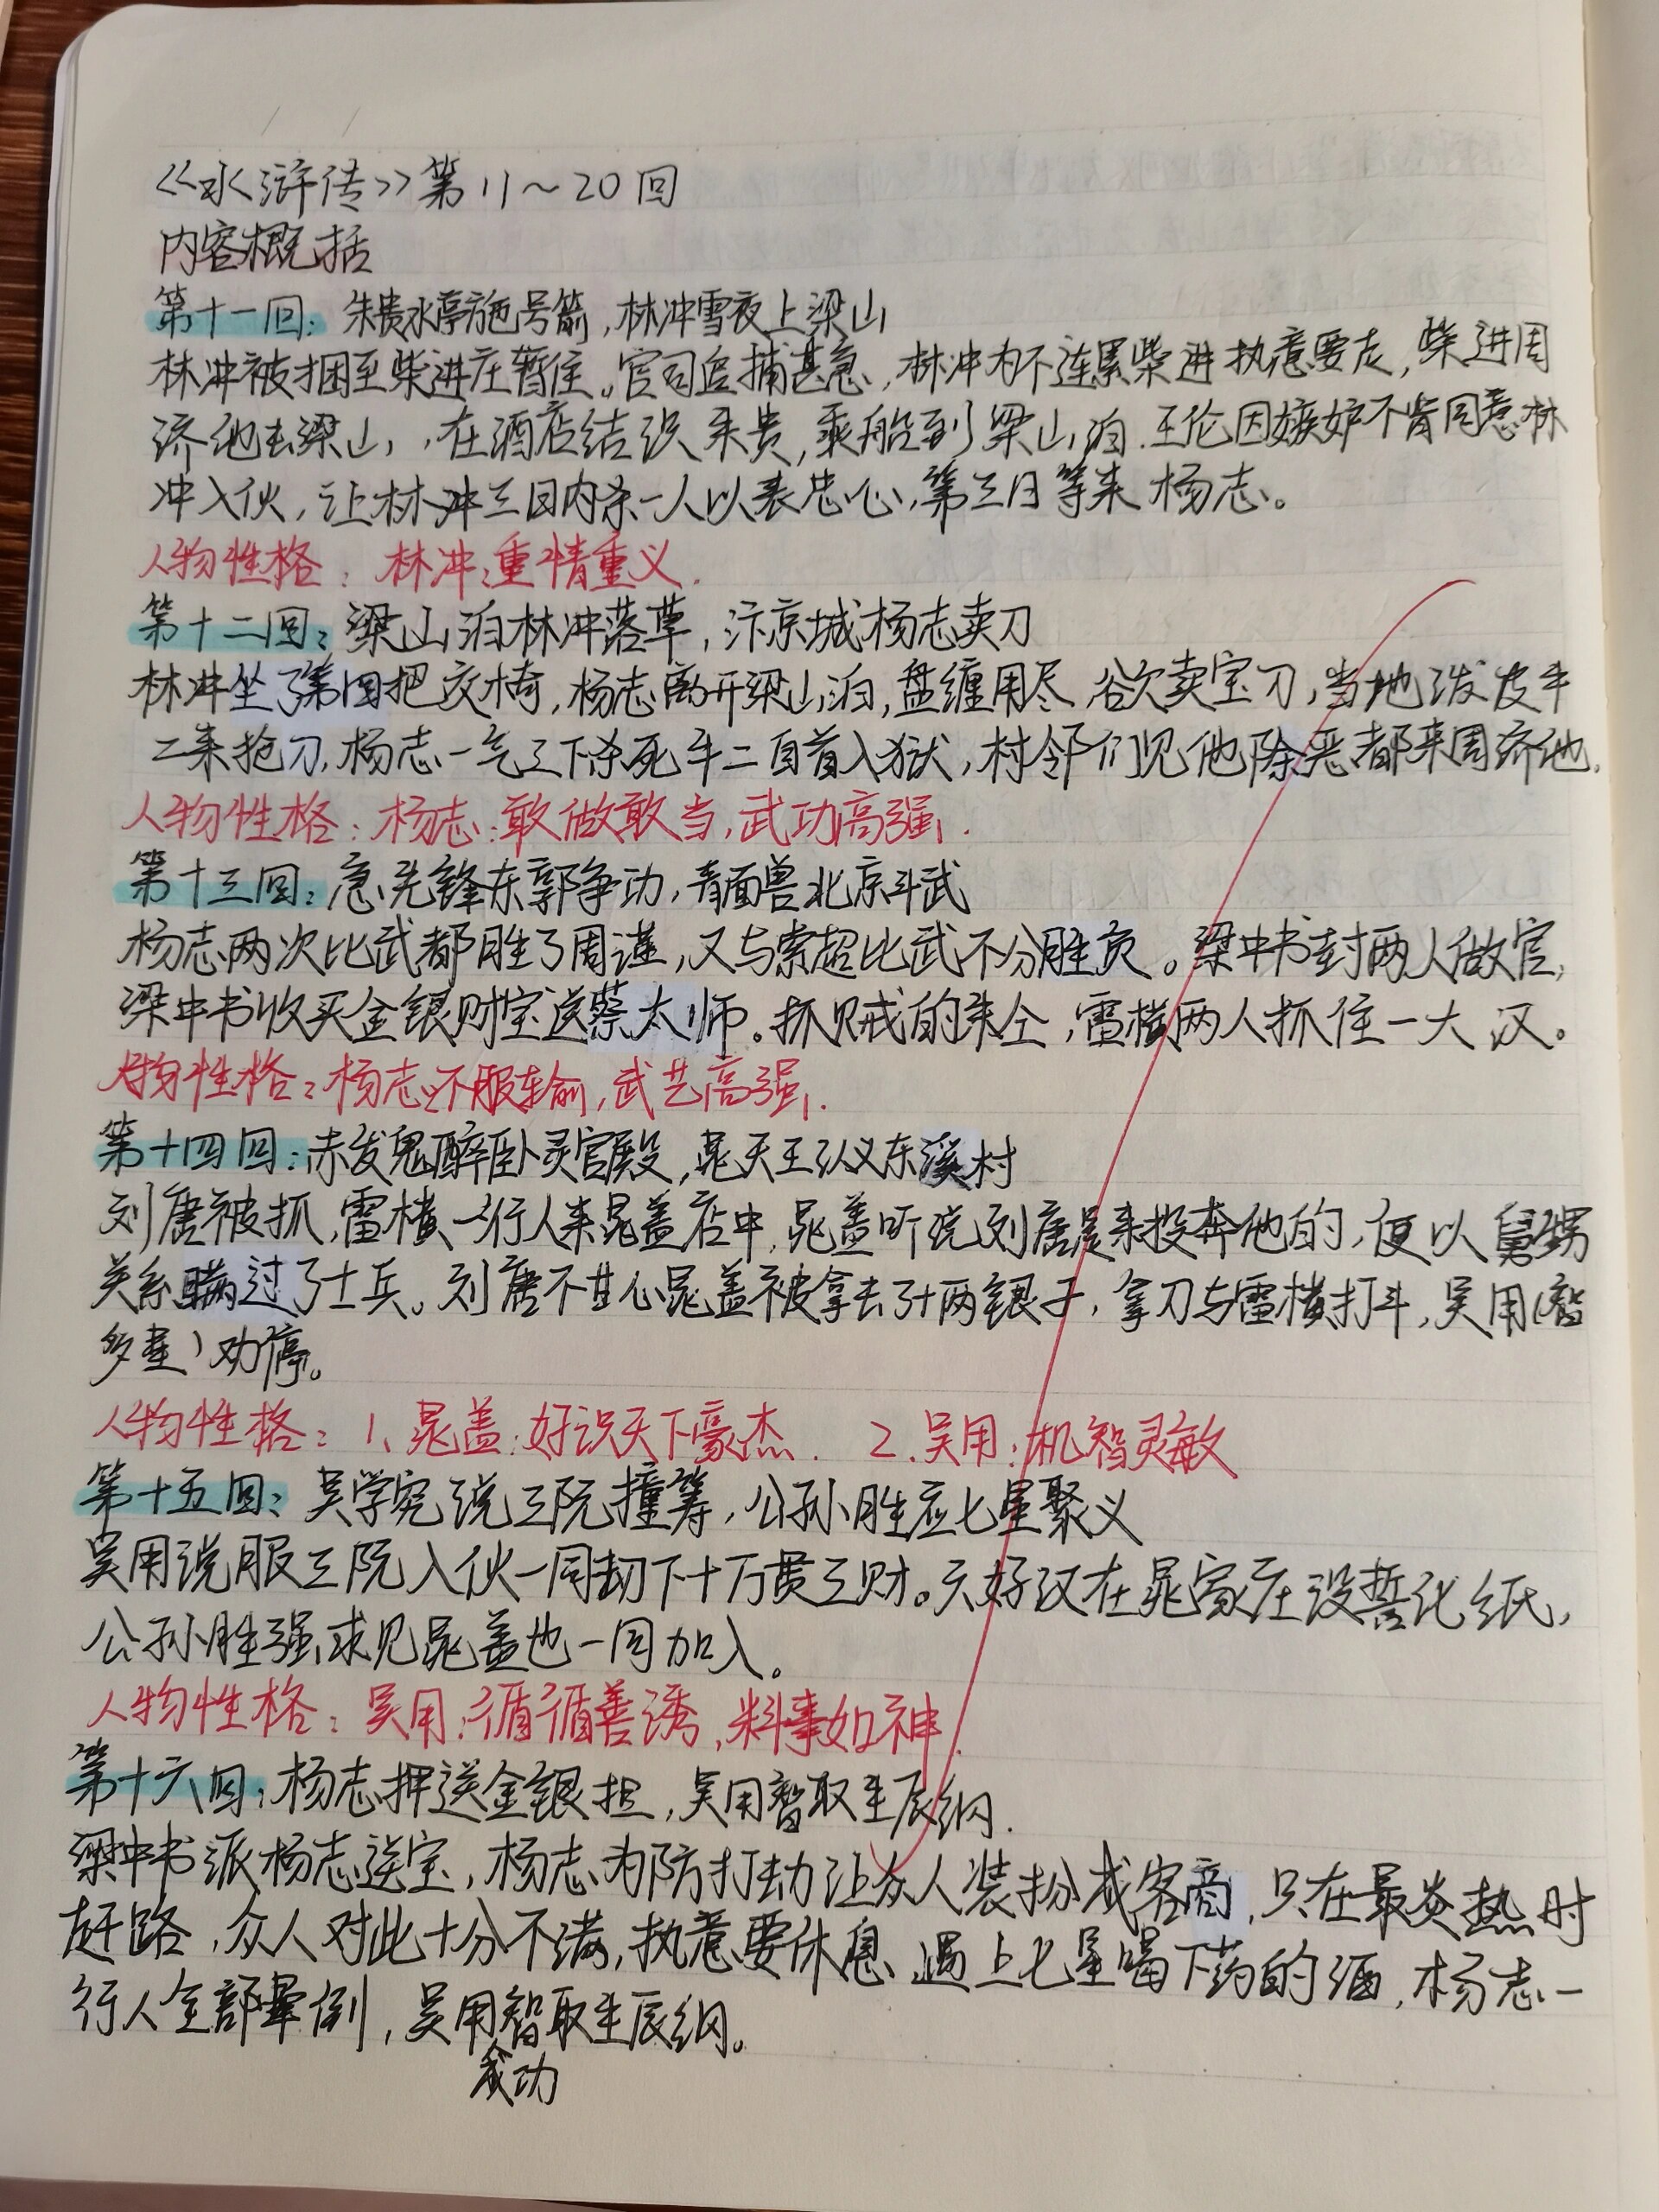 《水浒传》第11~20回
内容概括
第十一回：朱贵水亭施号箭，林冲雪夜上梁山
林冲被捆至柴进庄暂住。官司追捕甚急，林冲为不连累柴进执意要走，柴进周
济他去梁山，在酒店结识朱贵，乘船到梁山泊．王伦因嫉妒不肯同意林
冲入伙，让林冲三日内杀一人以表忠心，第三日等来杨志。
人物性格：林冲：重情重义．
第十二回：梁山泊林冲落草，汴京城杨志卖刀
林冲坐了第四把交椅，杨志离开梁山泊，盘缠用尽欲卖宝刀，当地泼皮牛
二来抢刀，杨志一气之下杀死牛二自首入狱，村邻们见他除恶都来周济他．
人物性格：杨志：敢做敢当，武功高强．
第十三回：急先锋东郭争功，青面兽北京斗武
杨志两次比武都胜了周谨，又与索超比武不分胜负。梁中书封两人做官，
梁中书收买金银财宝送蔡太师。抓贼的朱仝，雷横两人抓住一大汉。
人物性格：杨志：不服输，武艺高强．
第十四回：赤发鬼醉卧灵官殿，晁天王认义东溪村
刘唐被抓，雷横一行人来晁盖店中，晁盖听说刘唐是来投奔他的，便以舅甥
关系瞒过了士兵。刘唐不甘心晁盖被拿去了十两银子，拿刀与雷横打斗，吴用（智
多星）劝停。
人物性格：1、晁盖：好识天下豪杰． 2．吴用：机智灵敏
第十五回：吴学究说三阮撞筹，公孙胜应七星聚义
吴用说服三阮入伙一同劫下十万贯之财。六好汉在晁家庄设誓化纸，
公孙胜强求见晁盖也一同加入。
人物性格：吴用：循循善诱，料事如神．
第十六回：杨志押送金银担，吴用智取生辰纲．
梁中书派杨志送宝，杨志为防打劫让众人装扮成客商，只在最炎热时
赶路，众人对此十分不满，执意要休息、遇上七星喝下药的酒，杨志一
行人全部晕倒，吴用智取生辰纲。
成功